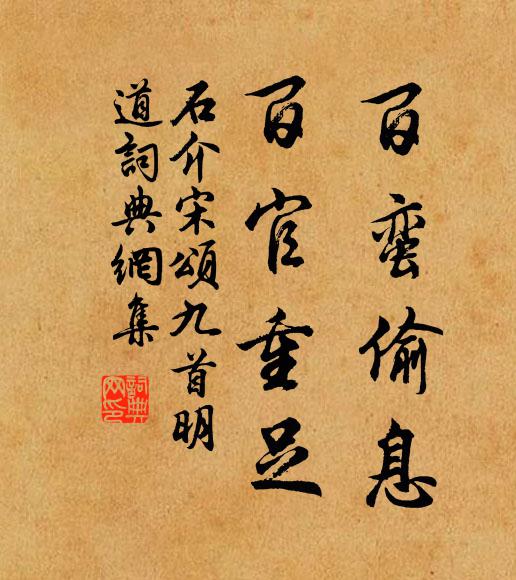 百蛮偷息
百官重足
石介宋頌九首明
道詞典網集
詞典
网印